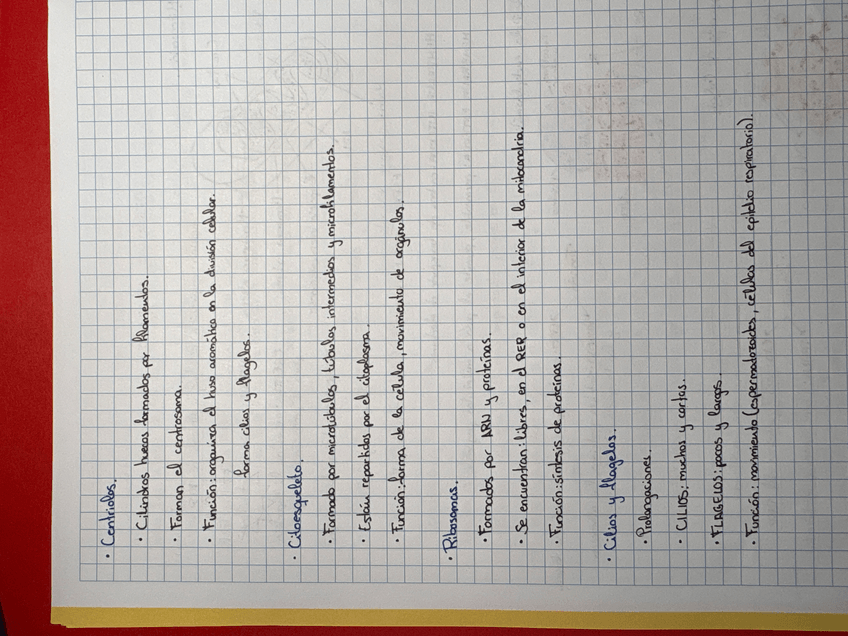 · Centriolos.
· Cilindros huecos formados por filamentos.
· Forman el centrosoma.
· Función: organiza el huso acromático en la división celular.
forma cilios y flagelos.
· Citoesqueleto.
· Formado por microtúbulos, túbulos intermedios y microfilamentos.
· Están repartidos por el citoplasma.
· Función: forma de la célula, movimiento de orgánulos.
· Ribosomas.
· Formados por ARN y proteínas.
· Se encuentran: libres, en el RER o en el interior de la mitocondria.
· Función: síntesis de proteínas.
· Cilios y flagelos.
· Prolongaciones.
· CILIOS: muchos y cortos.
· FLAGELOS: pocos y largos.
· Función: movimiento (espermatozoides, células del epitelio respiratorio).